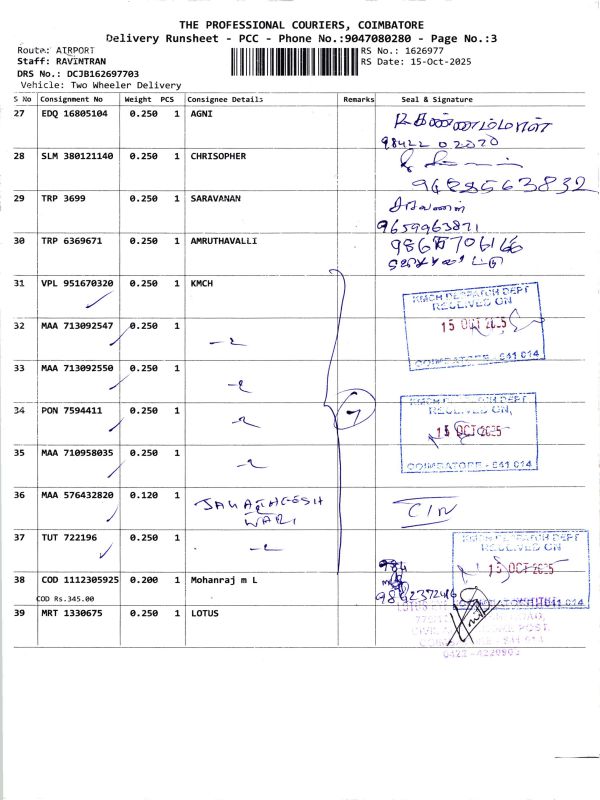 THE PROFESSIONAL COURIERS, COIMBATORE
Delivery Runsheet - PCC - Phone No.:9047080280 - Page No.:3
Route: AIRPORT RS No.: 1626977
Staff: RAVINTRAN RS Date: 15-Oct-2025
DRS No.: DCJB162697703
Vehicle: Two Wheeler Delivery
S No Consignment No Weight PCS Consignee Details Remarks Seal & Signature
27 EDQ 16805104 0.250 1 AGNI
98422 02020
28 SLM 380121140 0.250 1 CHRISOPHER
9488563832
29 TRP 3699 0.250 1 SARAVANAN
சரவணன்
9659963871
30 TRP 6369671 0.250 1 AMRUTHAVALLI
31 VPL 951670320 0.250 1 KMCH
KMCH DESPATCH DEPT
RECEIVED ON
15 OCT 2025
COIMBATORE - 641 014
32 MAA 713092547 0.250 1
33 MAA 713092550 0.250 1
34 PON 7594411 0.250 1
7
KMCH DESPATCH DEPT
RECEIVED ON,
15 OCT 2025
COIMBATORE - 641 014
35 MAA 710958035 0.250 1
36 MAA 576432820 0.120 1
C/N
37 TUT 722196 0.250 1
KMCH DESPATCH DEPT
RECEIVED ON
15 OCT 2025
38 COD 1112305925 0.200 1 Mohanraj m L
COD Rs.345.00
641 014
39 MRT 1330675 0.250 1 LOTUS
LOTUS
0422 - 4229900